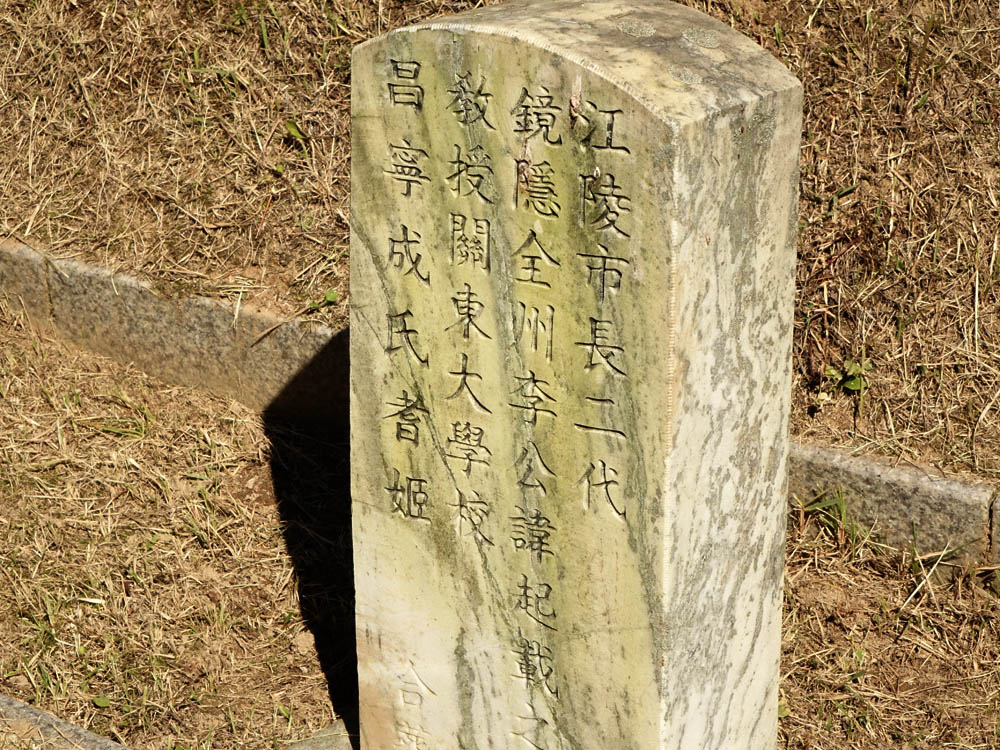 江陵市長二代
鏡隱全州李公諱起之
敎授關東大學校
昌寧成氏耆姬 合